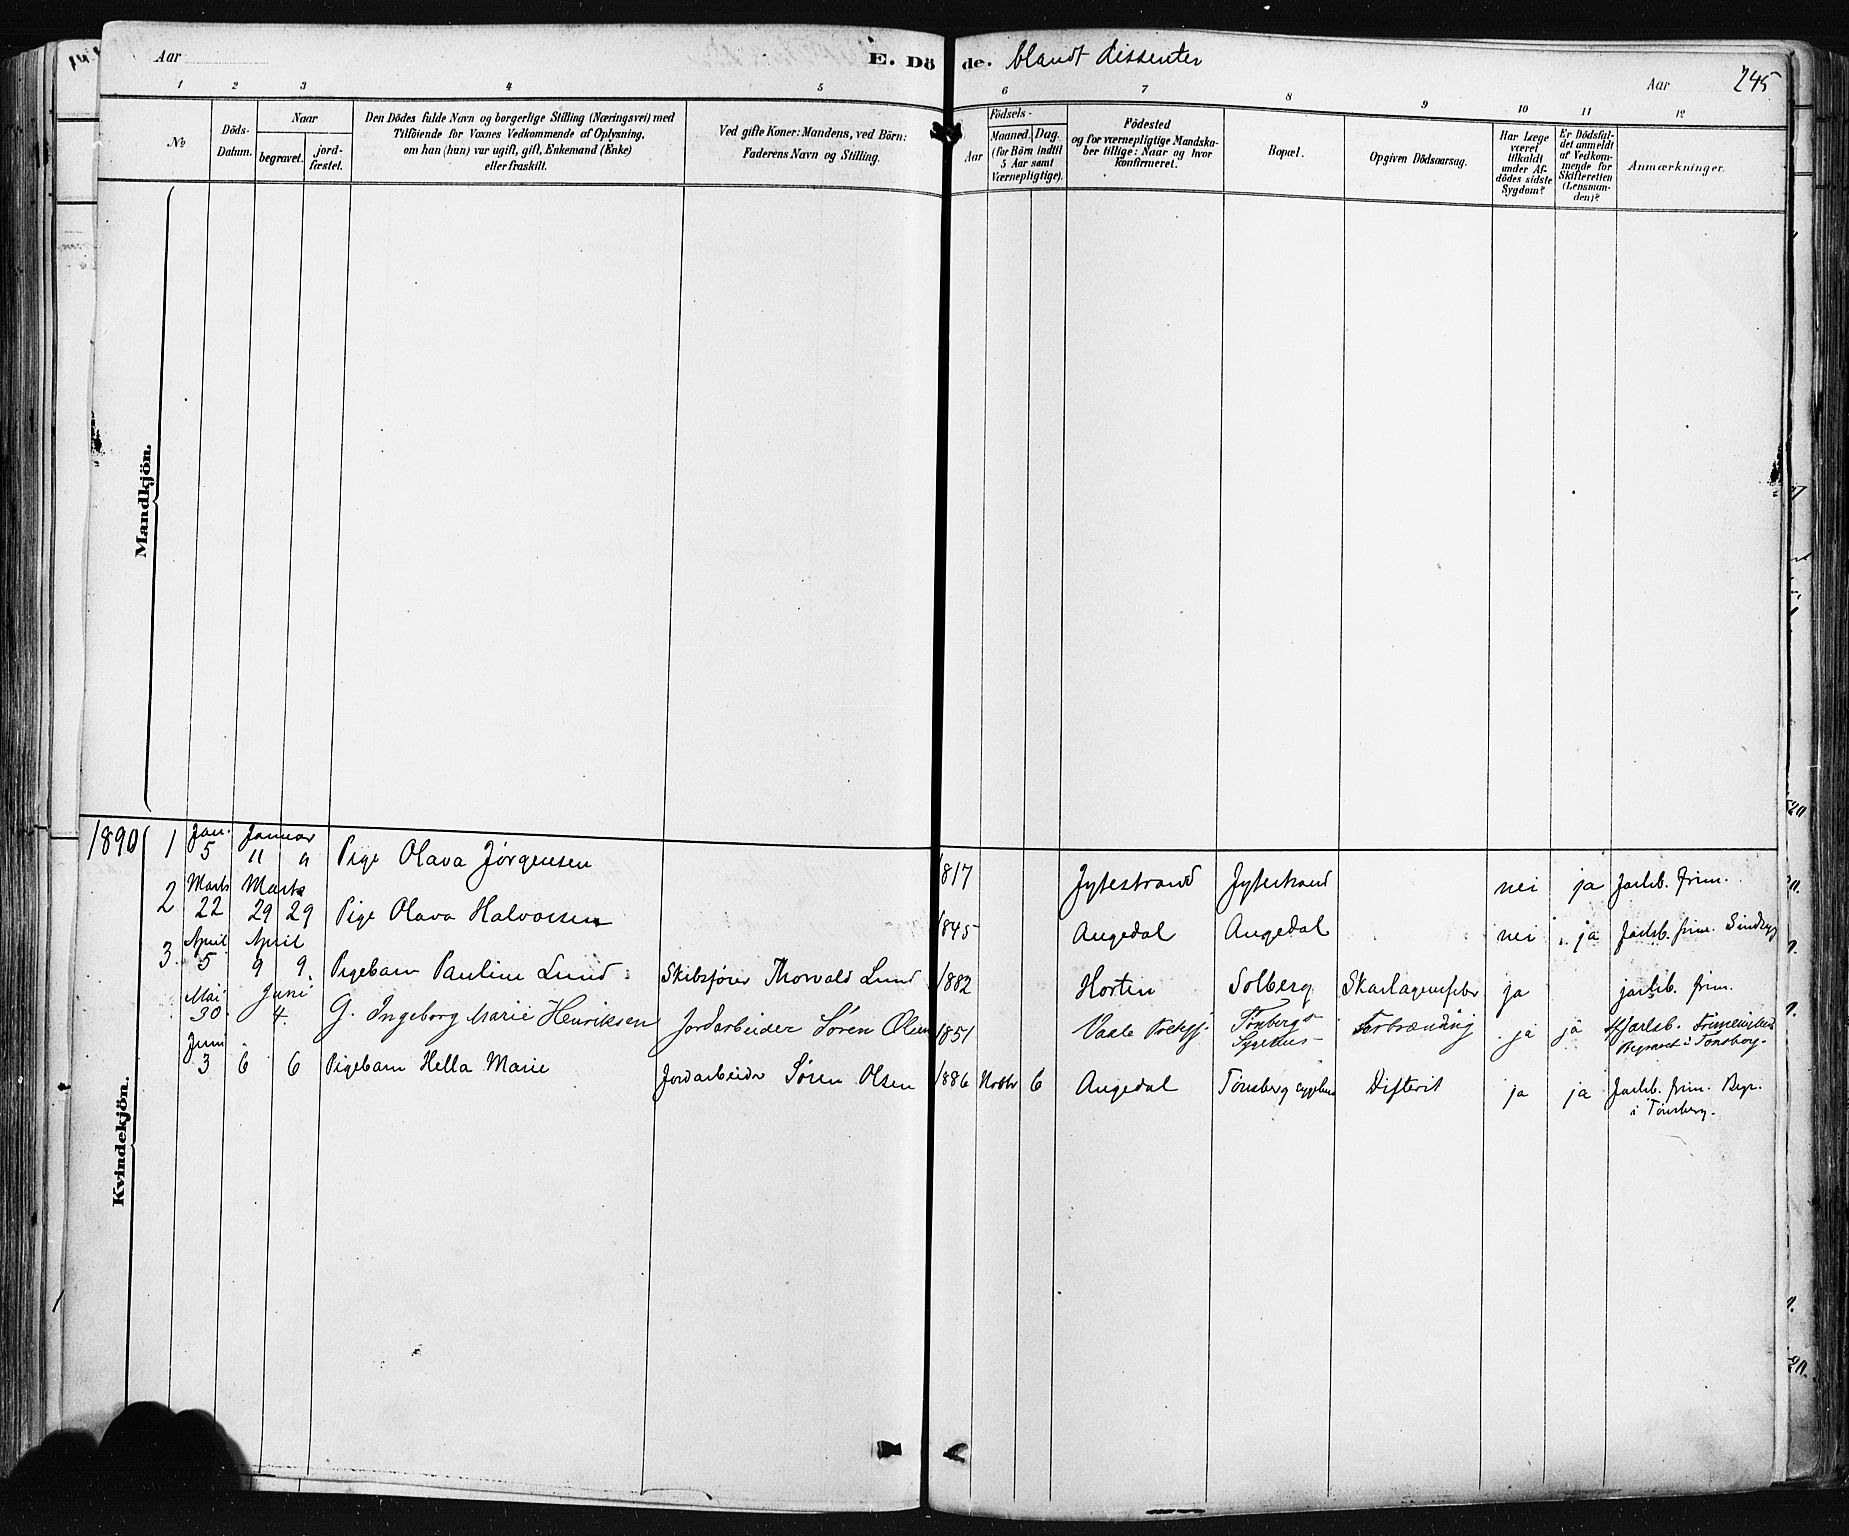 Aar
E. Döde. blandt dissenter
Aar
245
1 2 3 4 5 6 7 8 9 10 11 12
No
Döds-
Datum.
Naar
begravet.
jord-
fæstet.
Den Dödes fulde Navn og borgerlige Stilling (Næringsvei) med
Tilföiende for Voxnes Vedkommende af Oplysning,
om han (hun) var ugift, gift, Enkemand (Enke)
eller fraskilt.
Ved gifte Koner: Mandens, ved Börn:
Faderens Navn og Stilling.
Födsels-
Aar
Maaned. Dag.
(for Börn indtil
5 Aar samt
Værnepligtige).
Födested
og for værnepligtige Mandska-
ber tillige: Naar og hvor
konfirmeret.
Bopæl.
Opgiven Dödsaarsag.
Har Læge
været
tilkaldt
under Af-
dödes sidste
Sygdom?
Er Dödsfal-
det anmeldt
af Vedkom-
mende for
Skifteretten
(Lensman-
den)?
Anmærkninger.
Mandkjön.
Kvindekjön.
1890
1 Jan. 5 Januar 11 11 Pige Olava Jørgensen 1817 Jytestrand Jytestrand nei ja Jarlsb. frim.
2 Marts 22 Marts 29 29 Pige Olava Halvorsen 1845 Augedal Augedal nei ja Jarlsb. frim.
3. April 5 April 9 9. Pigebarn Pauline Lund Skibsfører Thorvald Lund 1882 Horten Solberg Skarlagensfeber ja jarlsb. frim.
Mai 30 Juni 4. G. Ingeborg Marie Henriksen Jordarbeider Søren Olsen 1851 Vaale Tønsbergs Sygehus Forbrænding ja ja Jarlsb. Frimenighed
Begravet i Tønsberg.
Juni 3 6 6 Pigebarn Hella Marie Jordarbeider Søren Olsen 1886 Novbr 6 Augedal Tønsberg sygehus Difterit ja ja Jarlsb. frim. Begr.
i Tønsberg.